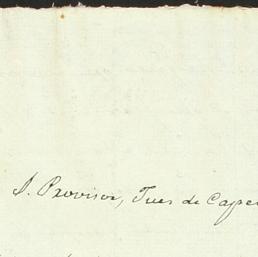 S. Provisor, Jues de Capel